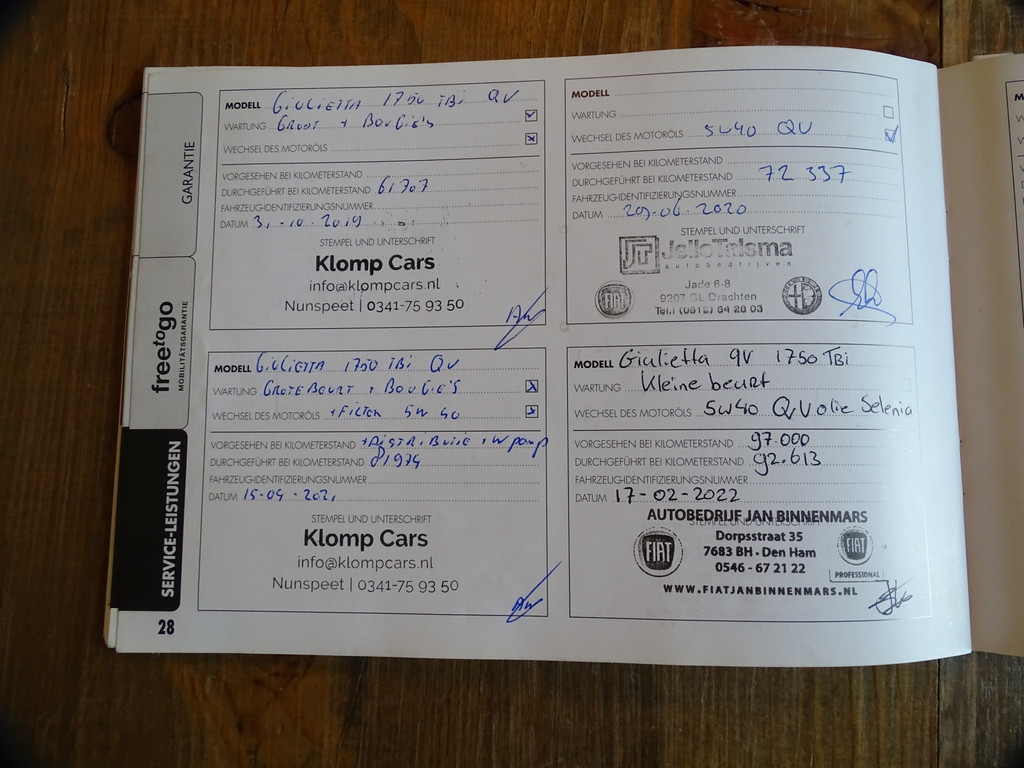 GARANTIE
freetogo
MOBILITÄTSGARANTIE
SERVICE-LEISTUNGEN
28
MODELL GIULIETTA 1750 TBi QV
WARTUNG GROOT + BOUGIE'S
WECHSEL DES MOTORÖLS
VORGESEHEN BEI KILOMETERSTAND
DURCHGEFÜHRT BEI KILOMETERSTAND 61707
FAHRZEUGIDENTIFIZIERUNGSNUMMER
DATUM 31-10-2019
STEMPEL UND UNTERSCHRIFT
Klomp Cars
info@klompcars.nl
Nunspeet | 0341-75 93 50
MODELL
WARTUNG
WECHSEL DES MOTORÖLS 5W40 QV
VORGESEHEN BEI KILOMETERSTAND
DURCHGEFÜHRT BEI KILOMETERSTAND 72 337
FAHRZEUGIDENTIFIZIERUNGSNUMMER
DATUM 29-06-2020
STEMPEL UND UNTERSCHRIFT
Jelle Talsma
autobedrijven
Jade 6-8
9207 GL Drachten
Tel.: (0512) 64 20 03
FIAT
MODELL GIULIETTA 1750 TBi QV
WARTUNG GROTE BEURT + BOUGIE'S
WECHSEL DES MOTORÖLS + FILTER 5W40
VORGESEHEN BEI KILOMETERSTAND + DISTRIBUTIE + W pomp
DURCHGEFÜHRT BEI KILOMETERSTAND 81974
FAHRZEUGIDENTIFIZIERUNGSNUMMER
DATUM 15-09-2021
STEMPEL UND UNTERSCHRIFT
Klomp Cars
info@klompcars.nl
Nunspeet | 0341-75 93 50
MODELL Giulietta QV 1750 TBi
WARTUNG Kleine beurt
WECHSEL DES MOTORÖLS 5W40 QV olie Selenia
VORGESEHEN BEI KILOMETERSTAND 97.000
DURCHGEFÜHRT BEI KILOMETERSTAND 92.613
FAHRZEUGIDENTIFIZIERUNGSNUMMER
DATUM 17-02-2022
STEMPEL UND UNTERSCHRIFT
AUTOBEDRIJF JAN BINNENMARS
Dorpsstraat 35
7683 BH - Den Ham
0546 - 67 21 22
WWW.FIATJANBINNENMARS.NL
FIAT
FIAT
PROFESSIONAL